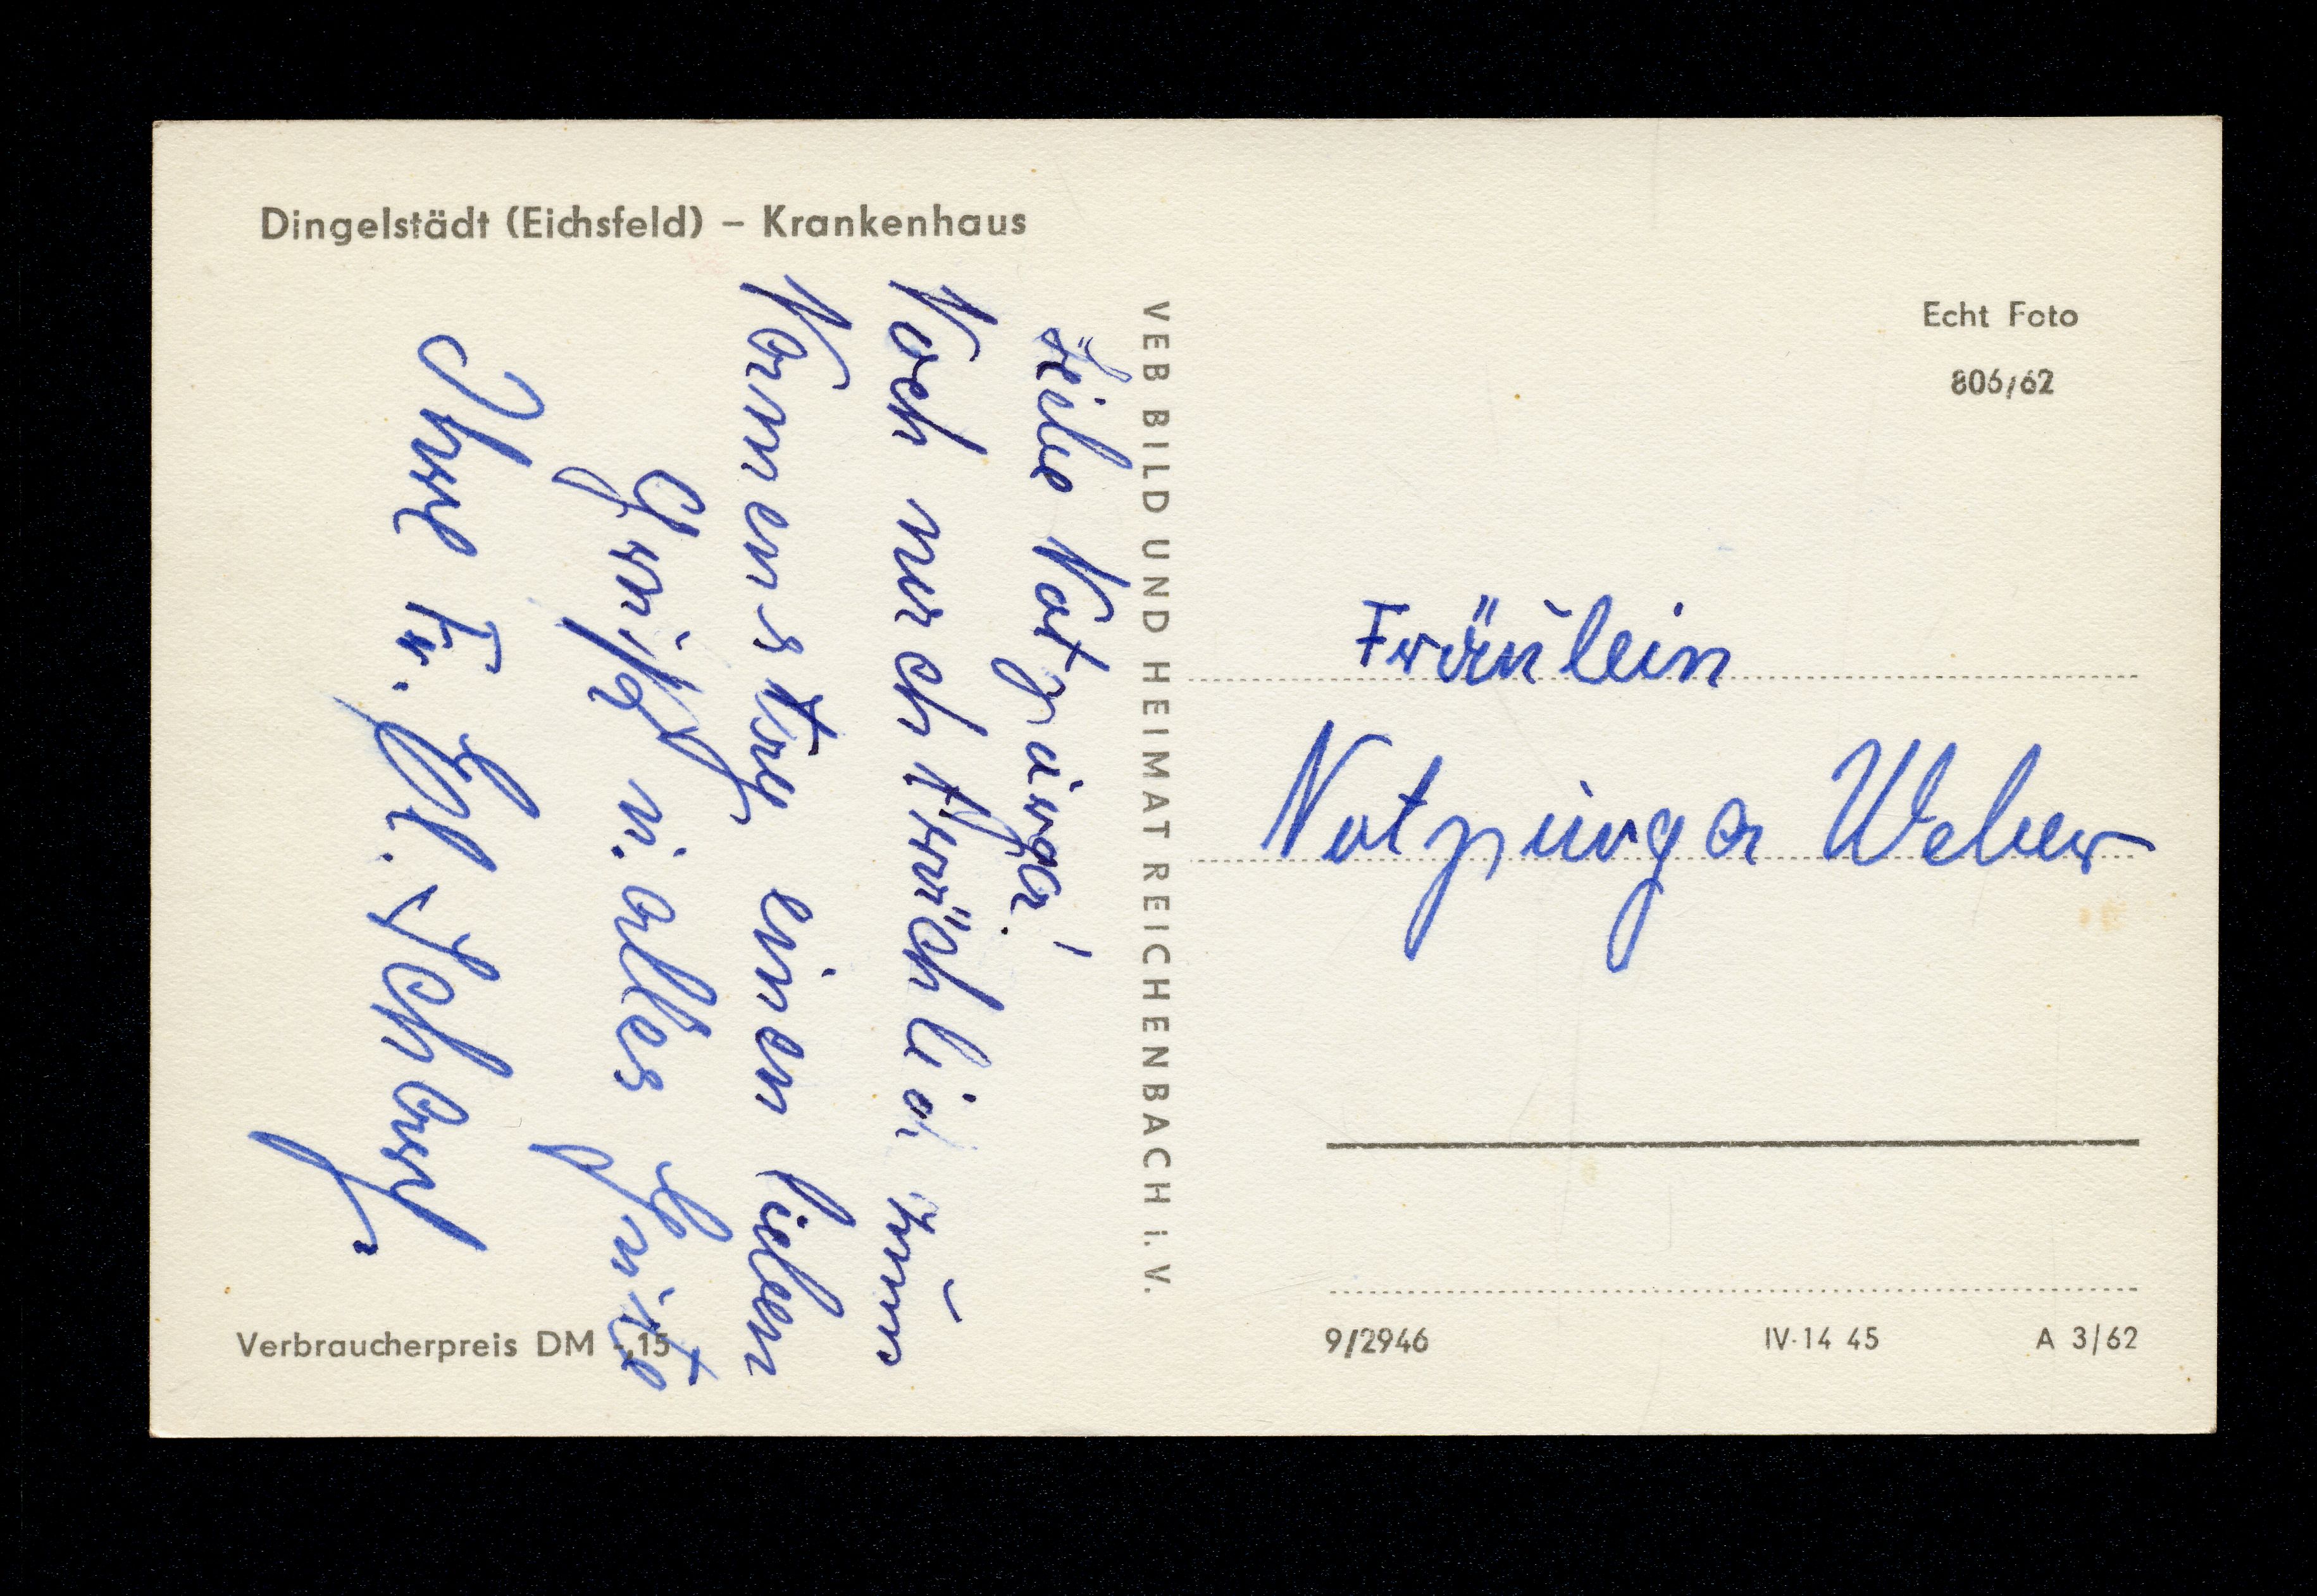 Dingelstädt (Eichsfeld) – Krankenhaus
Liebe Notpurga!
Noch nachträglich zum
Namenstag einen lieben
Gruß u. alles Gute
Ihre Fr. H. Scharf
Verbraucherpreis DM -,15
VEB BILD UND HEIMAT REICHENBACH i. V.
Echt Foto
806/62
Fräulein
Notpurga Weber
9/2946 IV-14 45 A 3/62